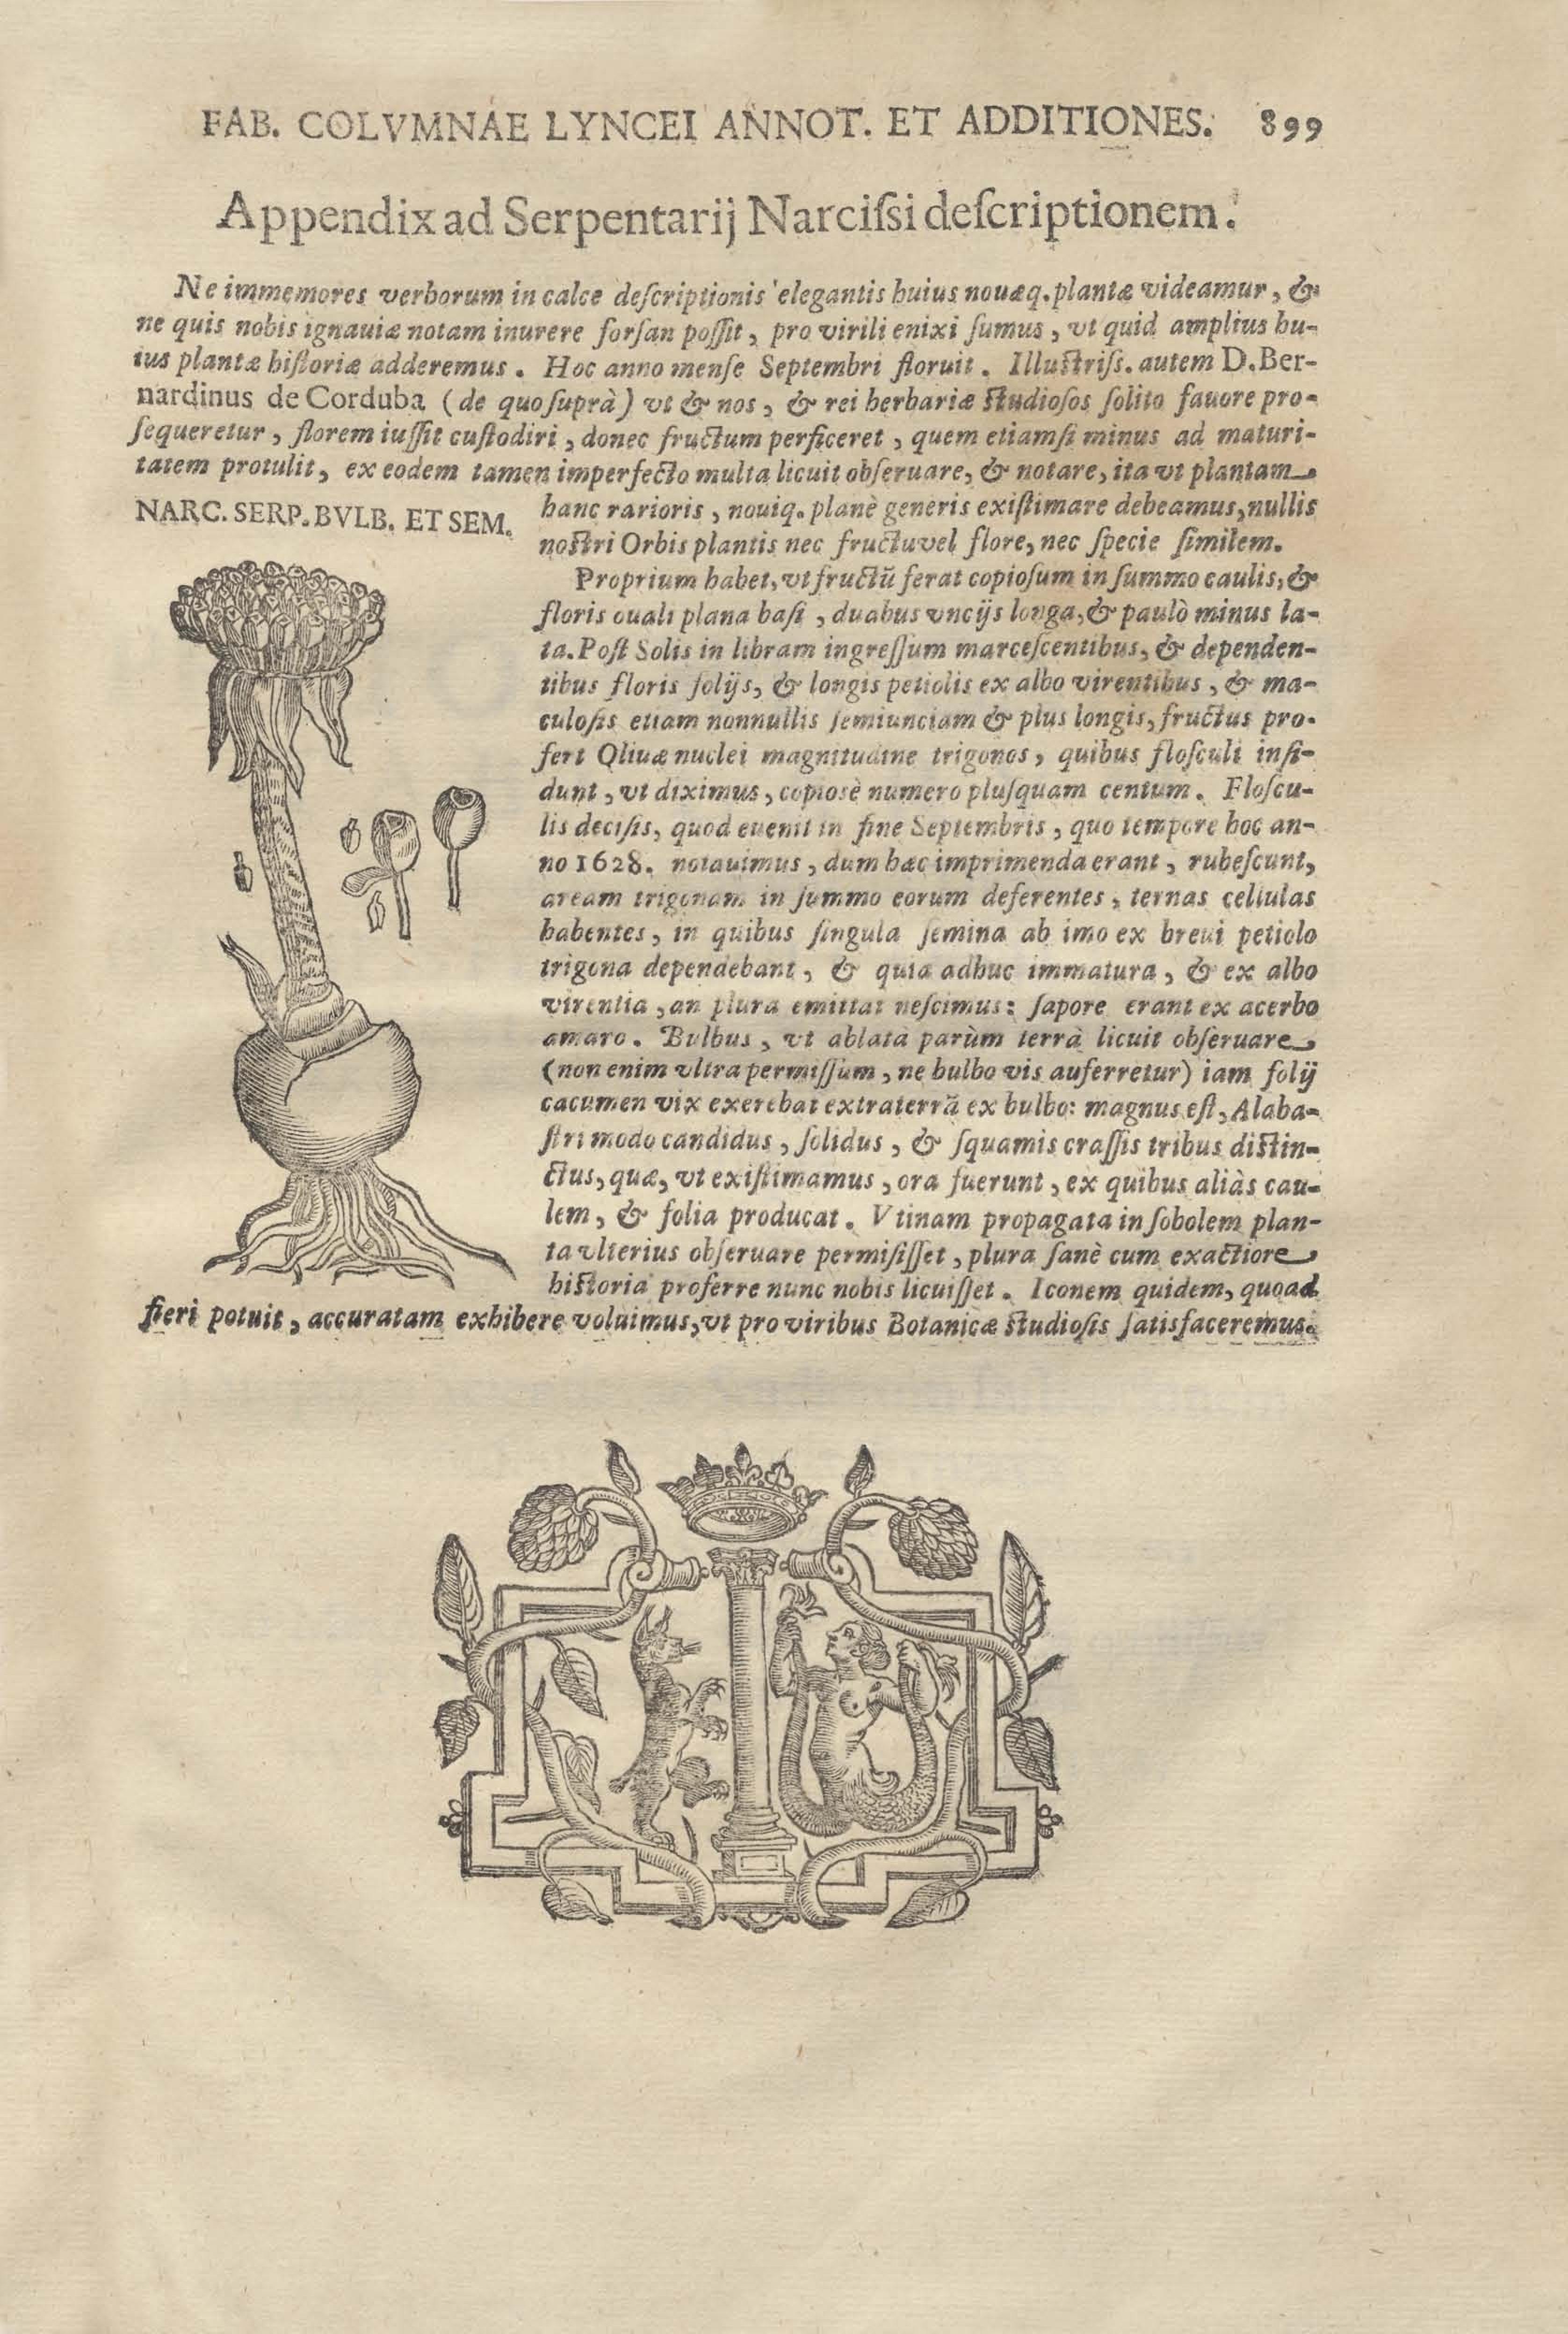 FAB. COLVMNAE LYNCEI ANNOT. ET ADDITIONES. 899
Appendix ad Serpentarij Narciſsi deſcriptionem.
Ne immemores verborum in calce deſcriptionis elegantis huius nouæq. plantæ videamur, &
ne quis nobis ignauiæ notam inurere forſan poſſit, pro virili enixi ſumus, vt quid amplius hu-
ius plantæ hiſtoriæ adderemus. Hoc anno menſe Septembri floruit. Illuſtriſs. autem D. Ber-
nardinus de Corduba (de quo ſuprà) vt & nos, & rei herbariæ ſtudioſos ſolito fauore pro-
ſequeretur, florem iuſſit cuſtodiri, donec fructum perficeret, quem etiamſi minus ad maturi-
tatem protulit, ex eodem tamen imperfecto multa licuit obſeruare, & notare, ita vt plantam
NARC. SERP. BVLB. ET SEM.
hanc rarioris, nouiq. planè generis exiſtimare debeamus, nullis
noſtri Orbis plantis nec fructu vel flore, nec ſpecie ſimilem.
Proprium habet, vt fructū ferat copioſum in ſummo caulis, &
floris ouali plana baſi, duabus vncijs longa, & paulò minus la-
ta. Poſt Solis in libram ingreſſum marceſcentibus, & dependen-
tibus floris folijs, & longis petiolis ex albo virentibus, & ma-
culoſis etiam nonnullis ſemiunciam & plus longis, fructus pro-
fert Oliuæ nuclei magnitudine trigonos, quibus floſculi inſi-
dunt, vt diximus, copiosè numero pluſquam centum. Floſcu-
lis deciſis, quod euenit in fine Septembris, quo tempore hoc an-
no 1628. notauimus, dum hæc imprimenda erant, rubeſcunt,
aream trigonam in ſummo eorum deferentes, ternas cellulas
habentes, in quibus ſingula ſemina ab imo ex breui petiolo
trigona dependebant, & quia adhuc immatura, & ex albo
virentia, an plura emittat neſcimus: ſapore erant ex acerbo
amaro. Bulbus, vt ablata parùm terrà licuit obſeruare
(non enim vltra permiſſum, ne bulbo vis auferretur) iam folij
cacumen vix exerebat extra terrā ex bulbo: magnus eſt, Alaba-
ſtri modo candidus, ſolidus, & ſquamis craſſis tribus diſtin-
ctus, quæ, vt exiſtimamus, ora fuerunt, ex quibus aliàs cau-
lem, & folia producat. Vtinam propagata in ſobolem plan-
ta vlterius obſeruare permiſiſſet, plura ſanè cum exactiore
hiſtoria proferre nunc nobis licuiſſet. Iconem quidem, quoad
fieri potuit, accuratam exhibere voluimus, vt pro viribus Botanicæ ſtudioſis ſatisfaceremus.